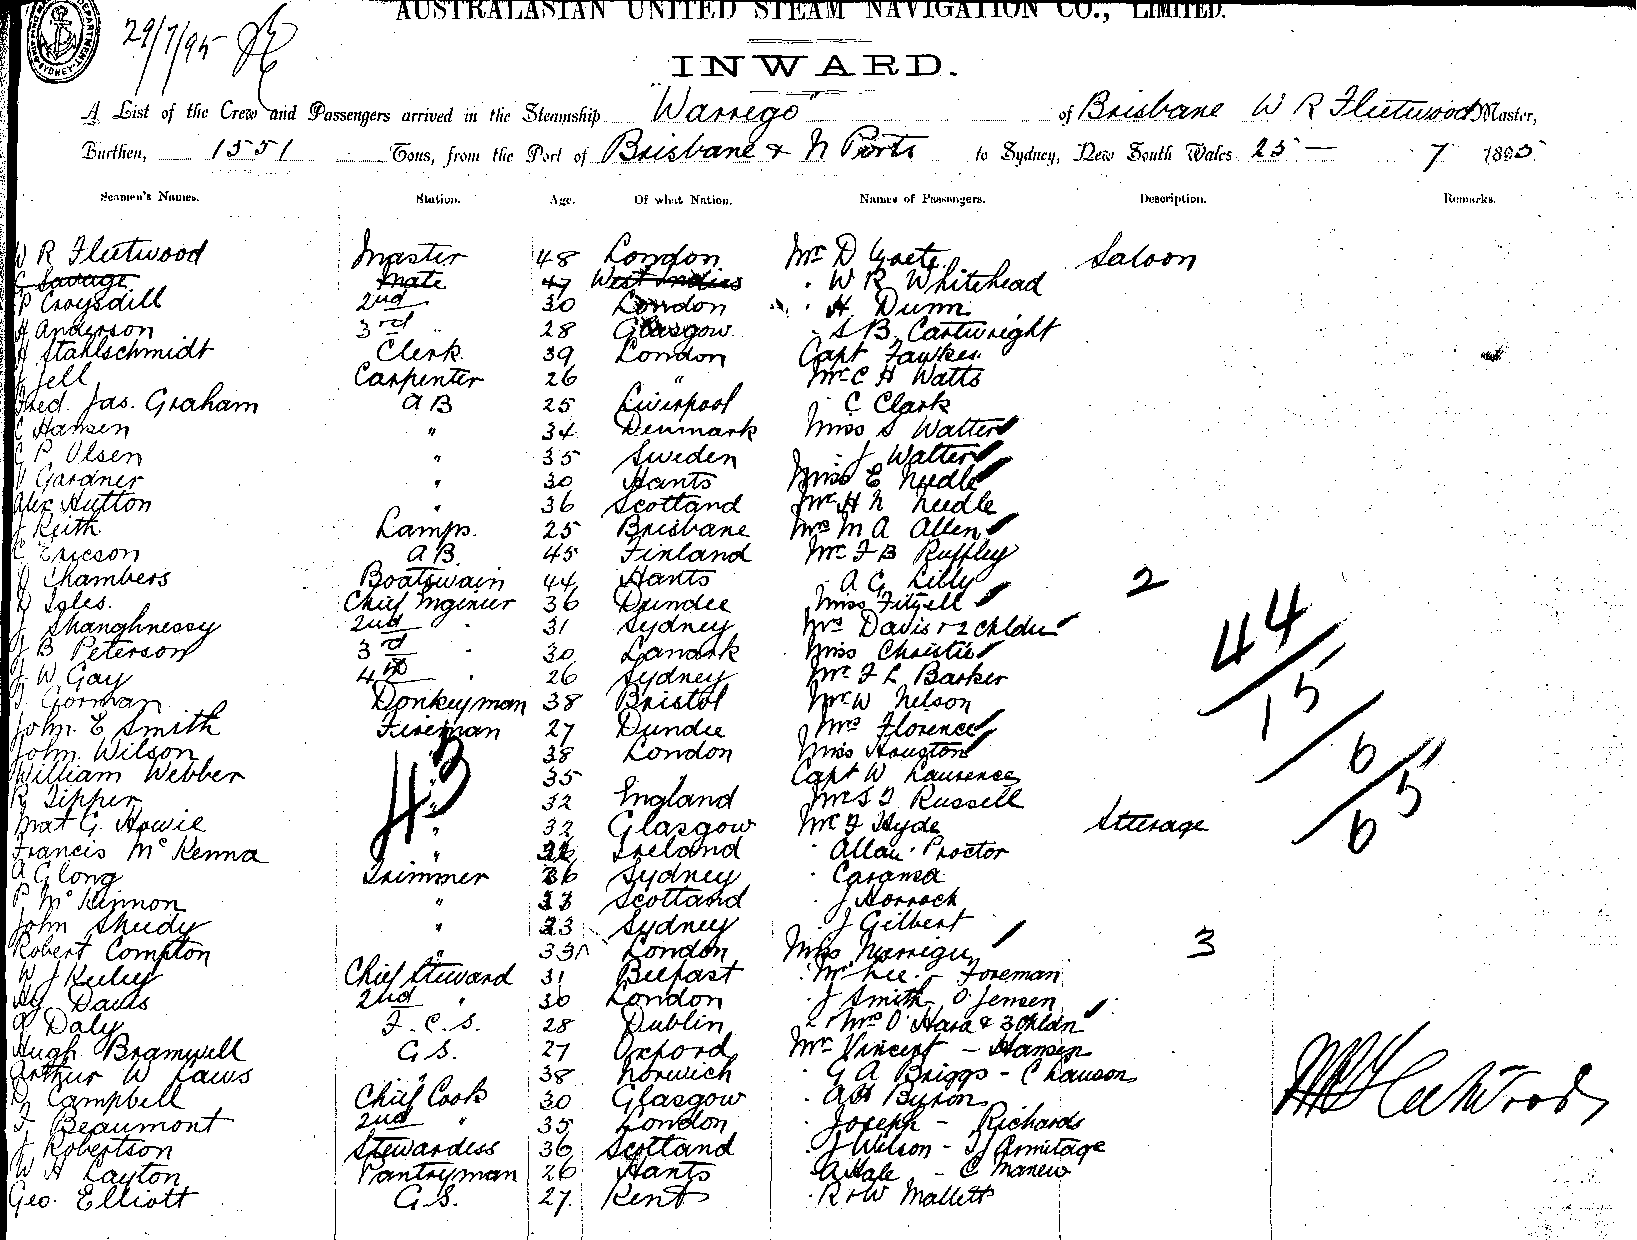 AUSTRALASIAN UNITED STEAM NAVIGATION CO., LIMITED.
29/7/95
INWARD.
A List of the Crew and Passengers arrived in the Steamship "Warrego" of Brisbane W R Fleetwood Master,
Burthen, 1551 Tons, from the Port of Brisbane & N Ports to Sydney, New South Wales 25 — 7 1895
Seamen's Names. Station. Age. Of what Nation. Names of Passengers. Description. Remarks.
W R Fleetwood Master 48 London Mr D Goete Saloon
C Savage Mate 47 West Indies " W R Whitehead
P Croysdill 2nd " 30 London " H Dunn
H Anderson 3rd " 28 Glasgow " S B Cartwright
H Stahlschmidt Clerk 39 London Capt Fawkes
J Jell Carpenter 26 " Mr C H Watts
Fred. Jas. Graham A B 25 Liverpool " C Clark
C Hansen " 34 Denmark Miss S Walter
C P Olsen " 35 Sweden " J Walter
V Gardner " 30 Hants Miss E Needle
Alex Hutton " 36 Scotland Mr H N Needle
J Keith Lamps. 25 Brisbane Mrs M A Allen
C Ericson A B. 45 Finland Mr F B Ruffley
J Chambers Boatswain 44 Hants " A C Lilly 2
D Isles. Chief Engineer 36 Dundee Miss Fitzell 44
J Shanghnessy 2nd " 31 Sydney Mrs Davis & 2 chldn
J B Peterson 3rd " 30 Lanark Miss Christie 15
J W Gay 4th " 26 Sydney Mr F L Barker
T Gorman Donkeyman 38 Bristol Mr W Nelson
John. E Smith Fireman 27 Dundee Mrs Florence 6
John. Wilson " 38 London Miss Hougton
William Webber 43 35 Capt W Laurence 5
R Tipper " 32 England Mr S J Russell
Mat G. Howie " 32 Glasgow Mr J Hyde Steerage 6
Francis McKenna " Ireland " Allan. Proctor
A Glong Trimmer 36 Sydney " Carama
P McKinnon " 33 Scotland " J Horrock
John Sheedy " 23 Sydney " J Gilbert
Robert Compton " 33 London Miss Narrigu 3
W J Kelley Chief Steward 31 Belfast " Mr Lee. - Foreman
Hy Davis 2nd " 30 London " J Smith - O Jensen
P Daly F. C. S. 28 Dublin Mrs O'Hara & 3 chldn
Hugh Bramwell G S. 27 Oxford Mr Vincent - Hansen
Arthur W Laws " 38 Norwich " G A Briggs - C Lauson
D Campbell Chief Cook 30 Glasgow " A H Byron
F. Beaumont 2nd " 35 London " Joseph - Richards
J Robertson Stewardess 36 Scotland " J Wilson - J Armitage
W H Layton Pantryman 26 Hants " A Hale - C Manew
Geo. Elliott G.S. 27 Kent " R & W Mallett
W R Fleetwood